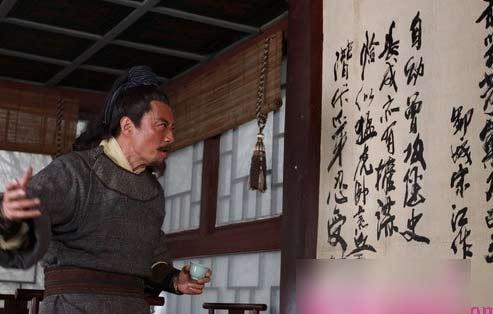 鄆城宋江作
自幼曾攻經史
長成亦有權謀
恰似猛虎卧荒丘
潛伏爪牙忍受
om